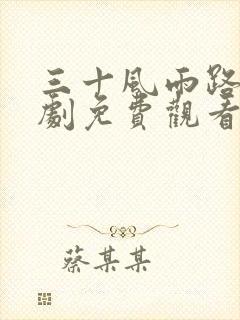 三十風雨路
劇免費觀看
蔡某某